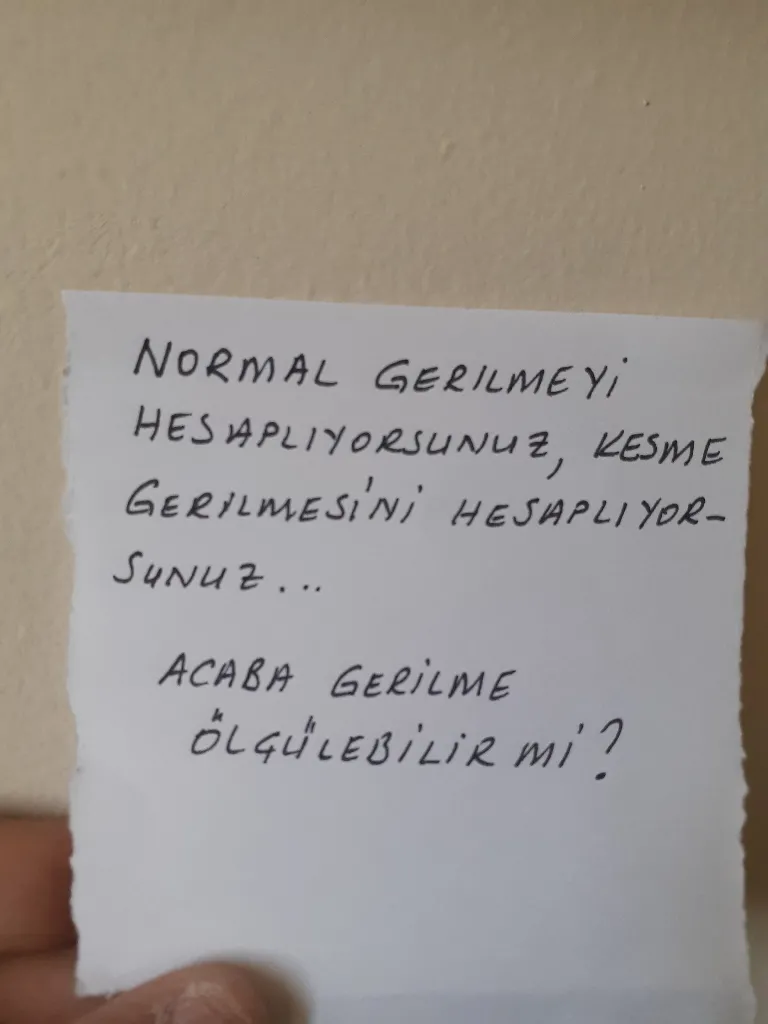 NORMAL GERILMEYİ
HESAPLIYORSUNUZ, KESME
GERİLMESİNİ HESAPLIYOR-
SUNUZ...
ACABA GERİLME
ÖLÇÜLEBİLİR Mİ?